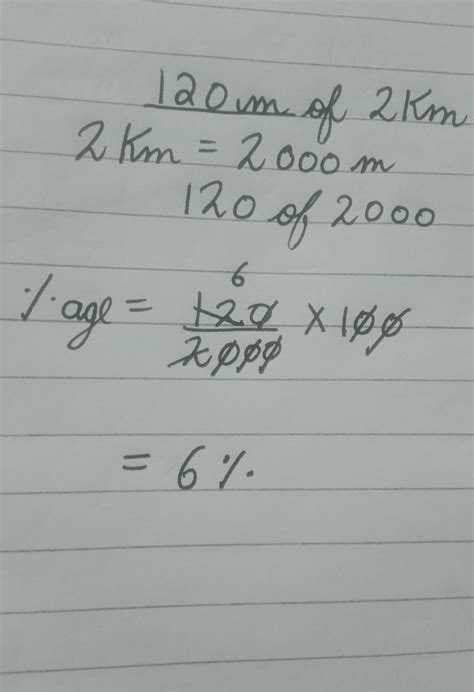 120m of 2Km
2Km = 2000m
120 of 2000
6
%age = 120/2000 × 100
= 6%